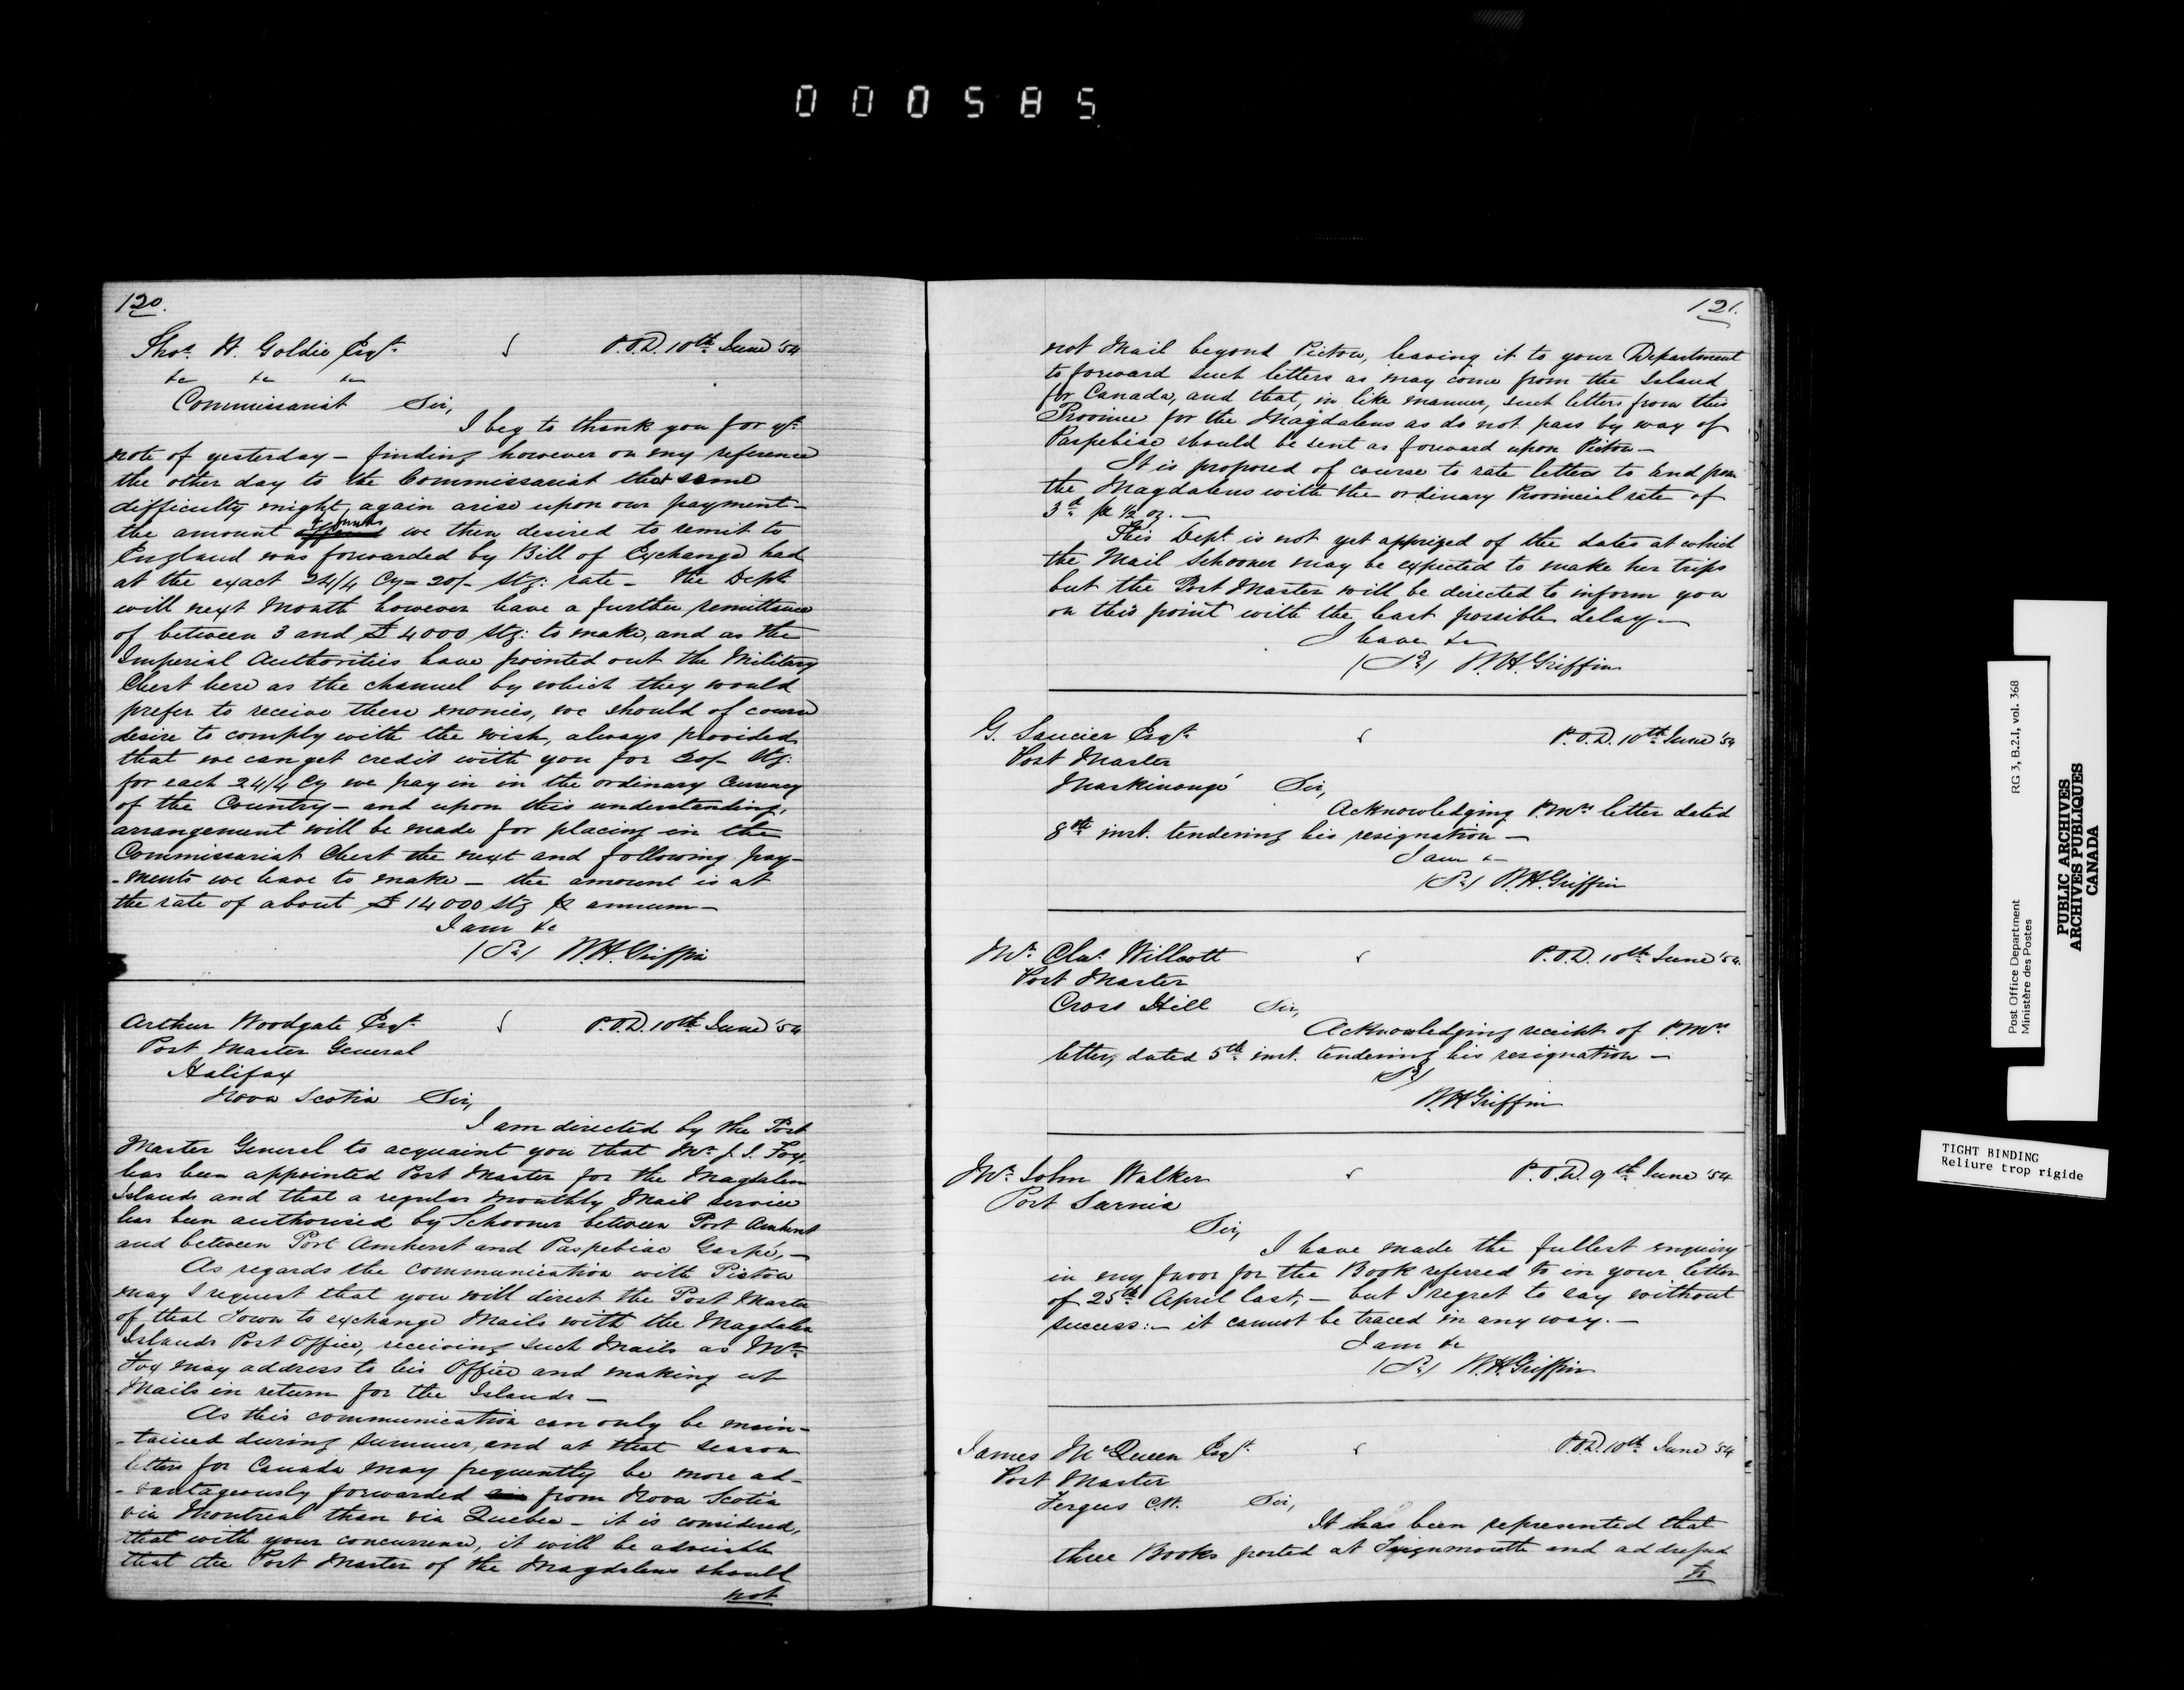 000585
120.
Thos. H. Goldie Esqr. P.O.D. 10th June '54
&c &c &c
Commissariat Sir,
I beg to thank you for yr.
note of yesterday – finding however on my reference
the other day to the Commissariat that some
difficulty might again arise upon our payment –
the amount we then desired to remit to
England was forwarded by Bill of Exchange had
at the exact 24/4 Cy = 20/- Stg: rate – the Dept
will next Month however have a further remittance
of between 3 and £4000 Stg: to make, and as the
Imperial Authorities have pointed out the Military
Chest here as the channel by which they would
prefer to receive these monies, we should of course
desire to comply with the wish, always provided
that we can get credit with you for 20/- Stg:
for each 24/4 Cy we pay in in the ordinary Currency
of the Country – and upon this understanding,
arrangement will be made for placing in the
Commissariat Chest the next and following pay-
-ments we have to make – the amount is at
the rate of about £14000 Stg ⅌ annum –
I am &c
(Sd.) W.H. Griffin
Arthur Woodgate Esqr. P.O.D. 10th June '54
Post Master General
Halifax
Nova Scotia Sir,
I am directed by the Post
Master General to acquaint you that Mr. J. J. Fox,
has been appointed Post Master for the Magdalen
Islands and that a regular monthly Mail service
has been authorised by Schooner between Port Amherst
and between Port Amherst and Paspebiac Gaspé, –
As regards the communication with Pictou
may I request that you will direct the Post Master
of that Town to exchange Mails with the Magdalen
Islands Post Office, receiving such Mails as Mr.
Fox may address to his Office and making up
Mails in return for the Islands –
As this communication can only be main-
-tained during summer, and at that season
letters for Canada may frequently be more ad-
-vantageously forwarded from Nova Scotia
via Montreal than via Quebec – it is considered,
that with your concurrence, it will be advisable
that the Post Master of the Magdalens should
not
121.
not Mail beyond Pictou, leaving it to your Department
to forward such letters as may come from the Island
for Canada, and that, in like manner, such letters from this
Province for the Magdalens as do not pass by way of
Paspebiac should be sent as forward upon Pictou –
It is proposed of course to rate letters to and from
the Magdalens with the ordinary Provincial rate of
3d. ⅌ ½ oz. –
This Dept is not yet apprized of the dates at which
the Mail Schooner may be expected to make her trips
but the Post Master will be directed to inform you
on this point with the least possible delay –
I have &c
(Sd.) W.H. Griffin
G. Saucier Esqr. P.O.D. 10th June '54
Post Master
Maskinongé Sir,
Acknowledging P.Mrs. letter dated
8th inst. tendering his resignation –
I am &c
(Sd.) W.H. Griffin
Mr. Chas. Willcott P.O.D. 10th June '54.
Post Master
Cross Hill Sir,
Acknowledging receipt of P.Mrs
letter, dated 5th inst. tendering his resignation –
(Sd.)
W.H. Griffin
Mr. John Walker P.O.D. 9th June '54
Port Sarnia
Sir,
I have made the fullest enquiry
in my favor for the Book referred to in your letter
of 25th April last, – but I regret to say without
success: – it cannot be traced in any way. –
I am &c
(Sd.) W.H. Griffin
James McQueen Esqr. P.O.D. 10th June '54
Post Master
Fergus C.W. Sir,
It has been represented that
three Books posted at Teignmouth and addressed
to
Post Office Department RG 3, B.2.1, vol. 368
Ministère des Postes
PUBLIC ARCHIVES
ARCHIVES PUBLIQUES
CANADA
TIGHT BINDING
Reliure trop rigide